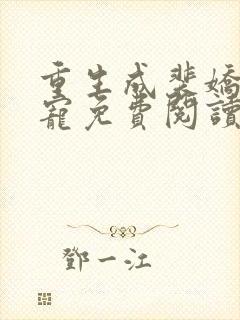 重生成裴嬌
寵免費閱讀
鄧一江